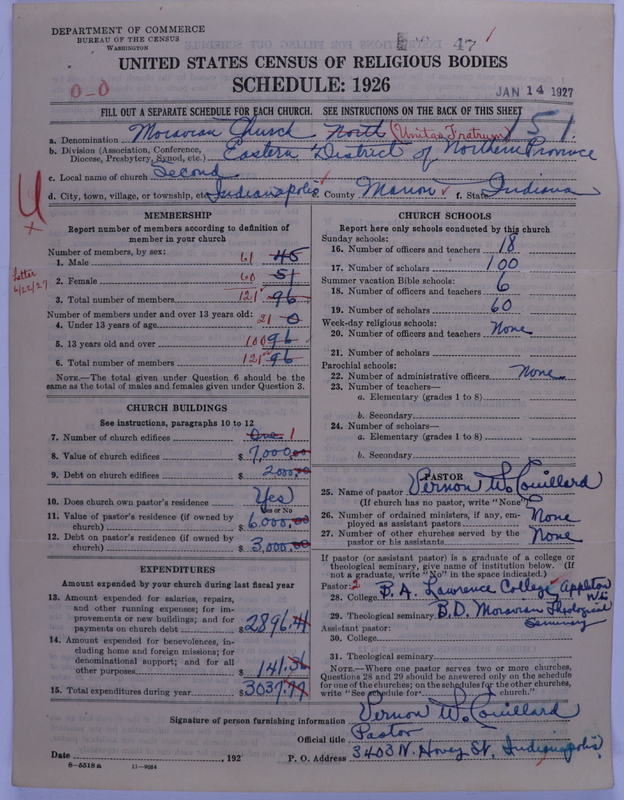 DEPARTMENT OF COMMERCE
BUREAU OF THE CENSUS
WASHINGTON
47
UNITED STATES CENSUS OF RELIGIOUS BODIES
SCHEDULE: 1926
0-0
JAN 14 1927
FILL OUT A SEPARATE SCHEDULE FOR EACH CHURCH. SEE INSTRUCTIONS ON THE BACK OF THIS SHEET
151
a. Denomination Moravian Church North (Unitas Fratrum)
b. Division (Association, Conference, Diocese, Presbytery, Synod, etc.) Eastern District of Northern Province
c. Local name of church Second
d. City, town, village, or township, etc. Indianapolis e. County Marion f. State Indiana
4
x
Letter
6/22/27
MEMBERSHIP
Report number of members according to definition of
member in your church
Number of members, by sex:
1. Male 61 45
2. Female 60 51
3. Total number of members 121 96
Number of members under and over 13 years old:
4. Under 13 years of age 21 0
5. 13 years old and over 100 96
6. Total number of members 121 96
NOTE.—The total given under Question 6 should be the
same as the total of males and females given under Question 3.
CHURCH BUILDINGS
See instructions, paragraphs 10 to 12
7. Number of church edifices One 1
8. Value of church edifices $ 7,000.00
9. Debt on church edifices $ 2000.00
10. Does church own pastor's residence Yes
Yes or No
11. Value of pastor's residence (if owned by
church) $ 6.000.00
12. Debt on pastor's residence (if owned by
church) $ 3,000.00
EXPENDITURES
Amount expended by your church during last fiscal year
13. Amount expended for salaries, repairs,
and other running expenses; for im-
provements or new buildings; and for
payments on church debt $ 2896.41
14. Amount expended for benevolences, in-
cluding home and foreign missions; for
denominational support; and for all
other purposes $ 141.36
15. Total expenditures during year $ 3037.77
CHURCH SCHOOLS
Report here only schools conducted by this church
Sunday schools:
16. Number of officers and teachers 18
17. Number of scholars 100
Summer vacation Bible schools:
18. Number of officers and teachers 6
19. Number of scholars 60
Week-day religious schools:
20. Number of officers and teachers None
21. Number of scholars
Parochial schools:
22. Number of administrative officers None
23. Number of teachers—
a. Elementary (grades 1 to 8)
b. Secondary
24. Number of scholars—
a. Elementary (grades 1 to 8)
b. Secondary
PASTOR
25. Name of pastor Vernon W. Couillard
(If church has no pastor, write "None")
26. Number of ordained ministers, if any, em-
ployed as assistant pastors None
27. Number of other churches served by the
pastor or his assistants None
If pastor (or assistant pastor) is a graduate of a college or
theological seminary, give name of institution below. (If
not a graduate, write "No" in the space indicated.)
Pastor: 2
28. College B.A. Lawrence College, Appleton Wis
29. Theological seminary B.D. Moravian Theological Seminary
Assistant pastor:
30. College
31. Theological seminary
NOTE.—Where one pastor serves two or more churches,
Questions 28 and 29 should be answered only on the schedule
for one of the churches; on the schedules for the other churches,
write "See schedule for church."
Signature of person furnishing information Vernon W. Couillard
Official title Pastor
Date , 192 P. O. Address 3403 N. Hovey St, Indianapolis
8-5518a 11-9264